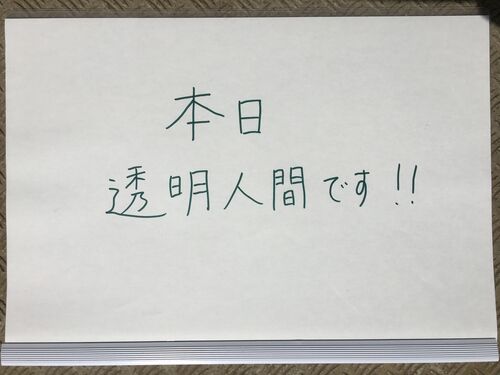 本日
透明人間です!!